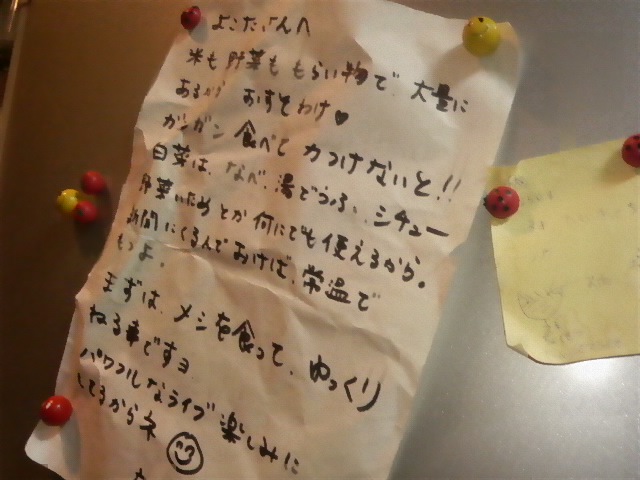 よこたさんへ
米も野菜ももらい物で、大量に
あるが おすそわけ♥
ガンガン食べて 力つけないと!!
白菜は、なべ、湯どうふ、シチュー
野菜いためとか何にでも使えるから。
新聞にくるんでおけば、常温で
もつよ。
まずは、メシを食って、ゆっくり
ねる事ですヨ
パワフルなライブ楽しみに
してるからネ